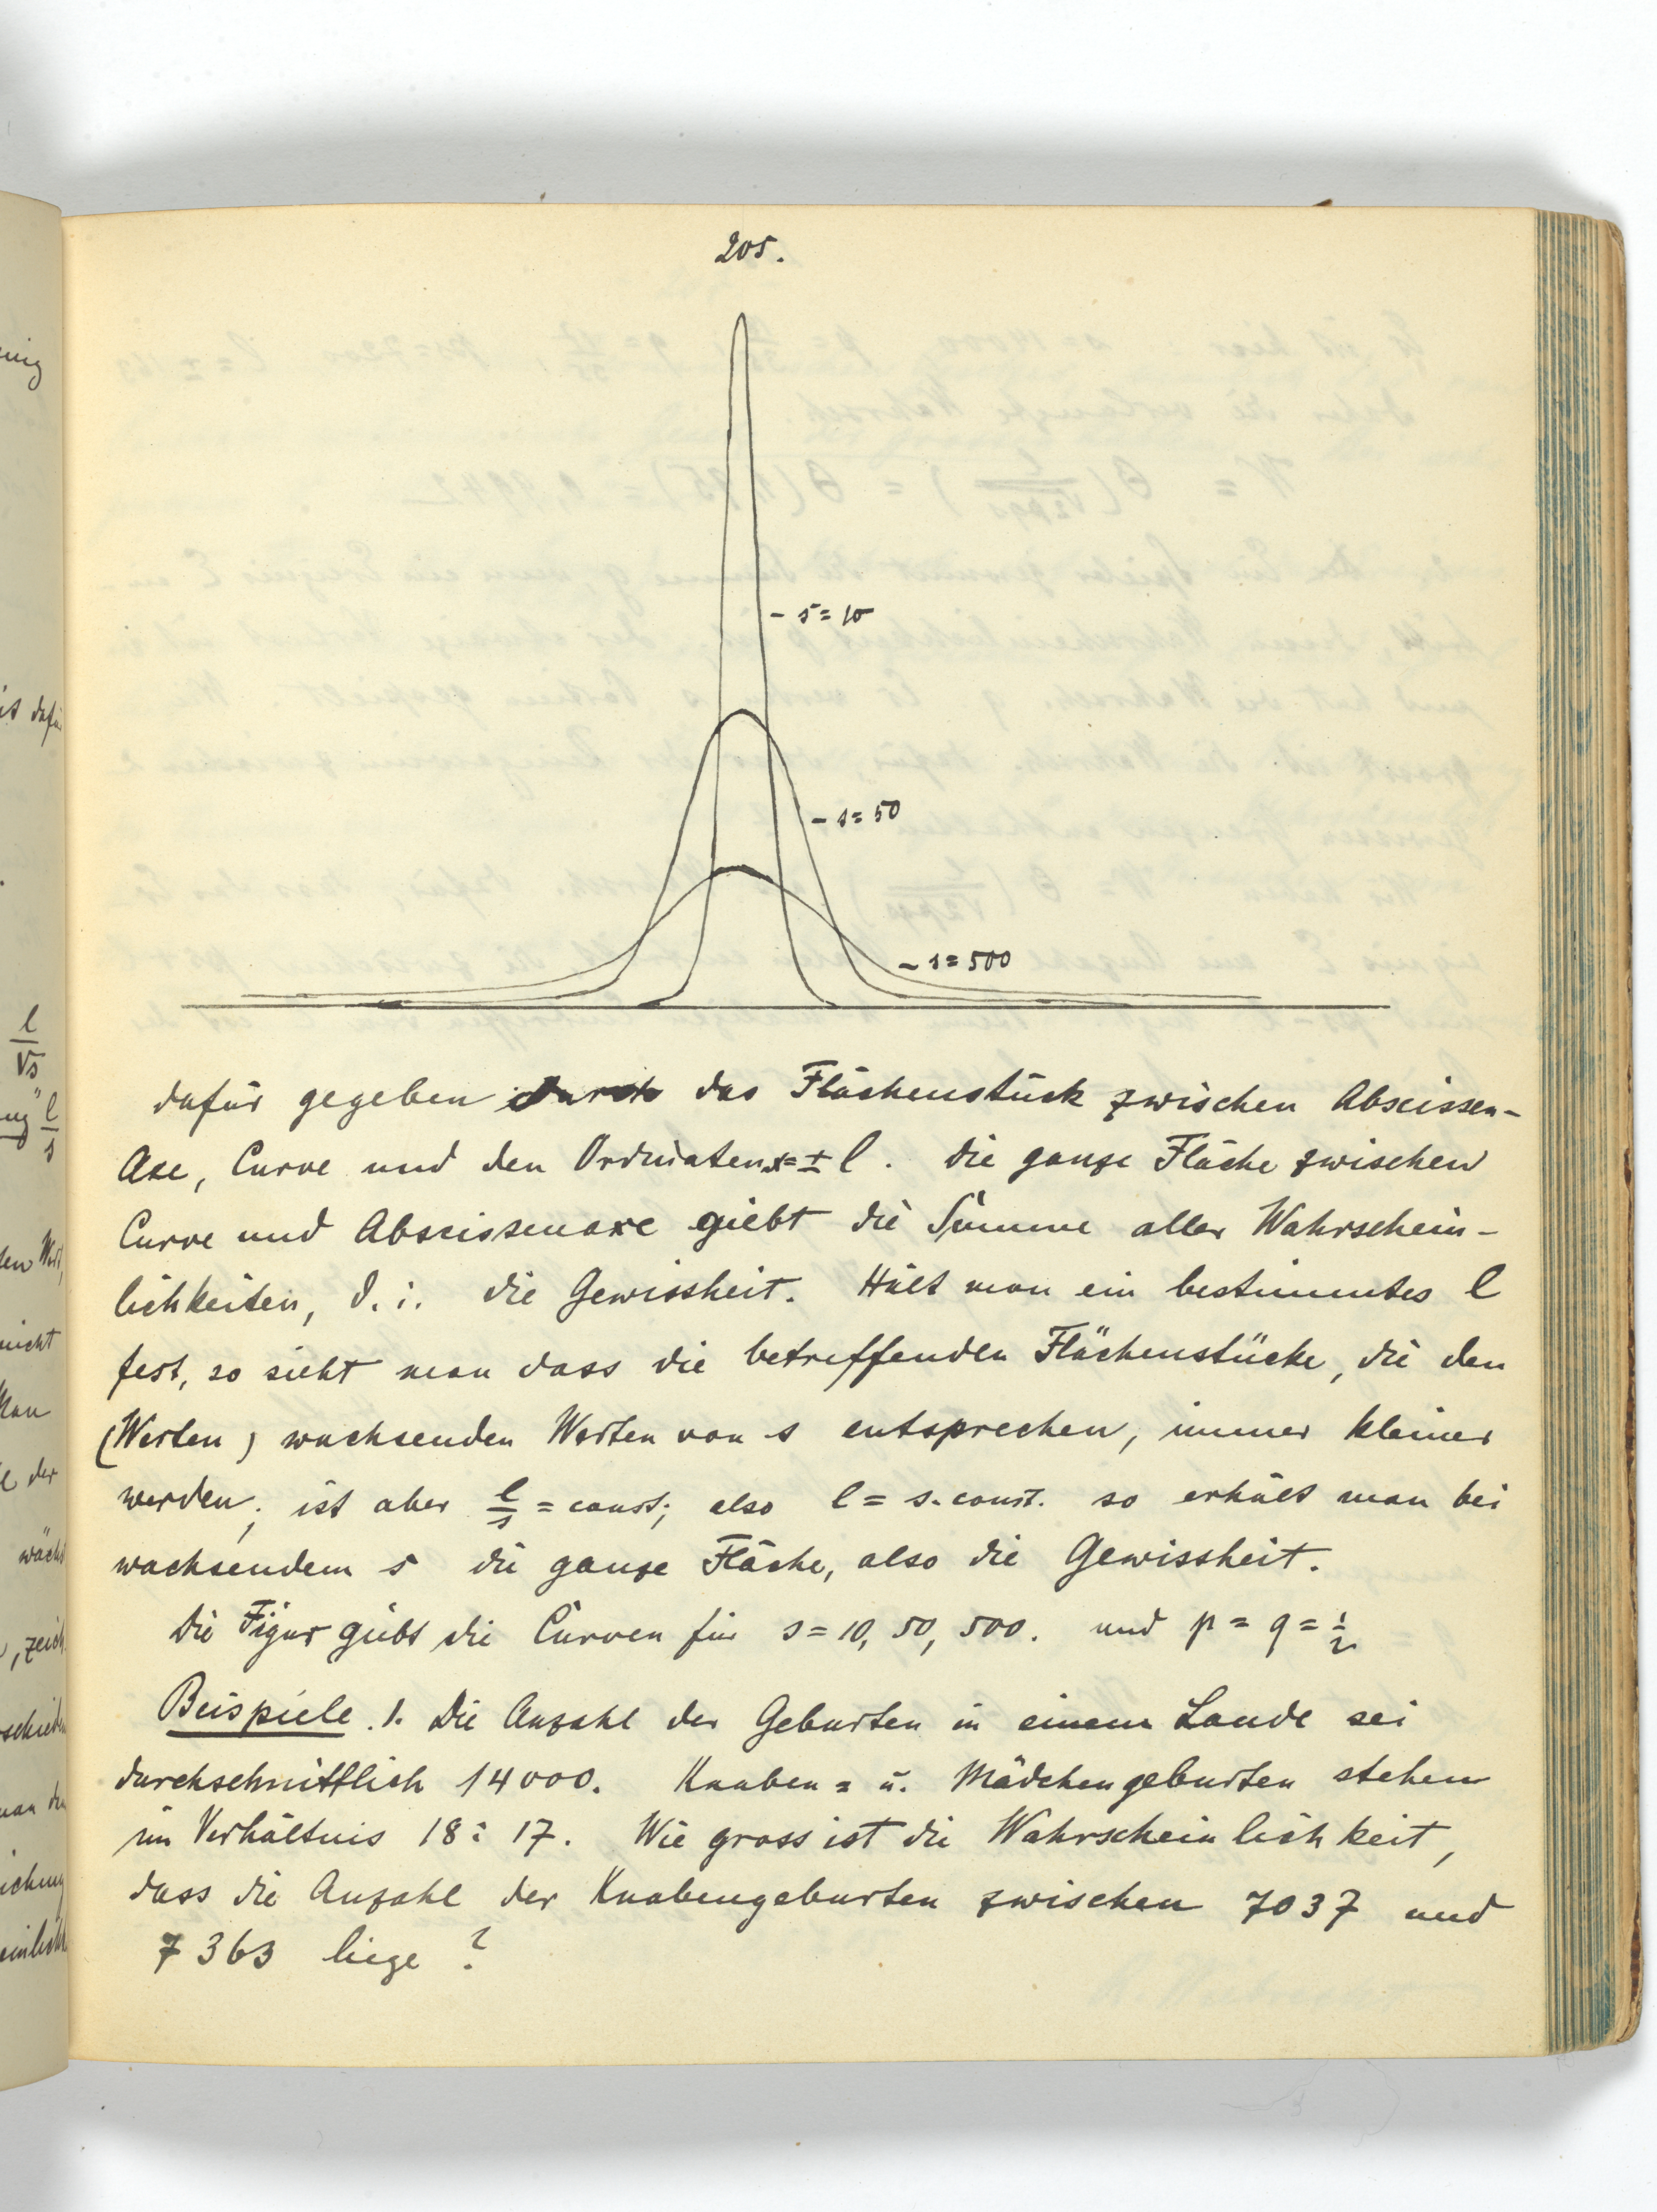 205.
- s = 10
- s = 50
- s = 500
dafür gegeben durch das Flächenstück zwischen Abscissen-
Axe, Curve und den Ordinaten x = ± l. Die ganze Fläche zwischen
Curve und Abscissenaxe giebt die Summe aller Wahrschein-
lichkeiten, d. i. die Gewissheit. Hält man ein bestimmtes l
fest, so sieht man dass die betreffenden Flächenstücke, die den
(Werten) wachsenden Werten von s entsprechen, immer kleiner
werden; ist aber l/s = const; also l = s. const. so erhält man bei
wachsendem s die ganze Fläche, also die Gewissheit.
Die Figur giebt die Curven für s = 10, 50, 500. und p = q = 1/2
Beispiele. 1. Die Anzahl der Geburten in einem Lande sei
durchschnittlich 14000. Knaben = u. Mädchengeburten stehen
im Verhältnis 18 : 17. Wie gross ist die Wahrscheinlichkeit,
dass die Anzahl der Knabengeburten zwischen 7037 und
7363 liege?
l
√s
l
s
nicht
der